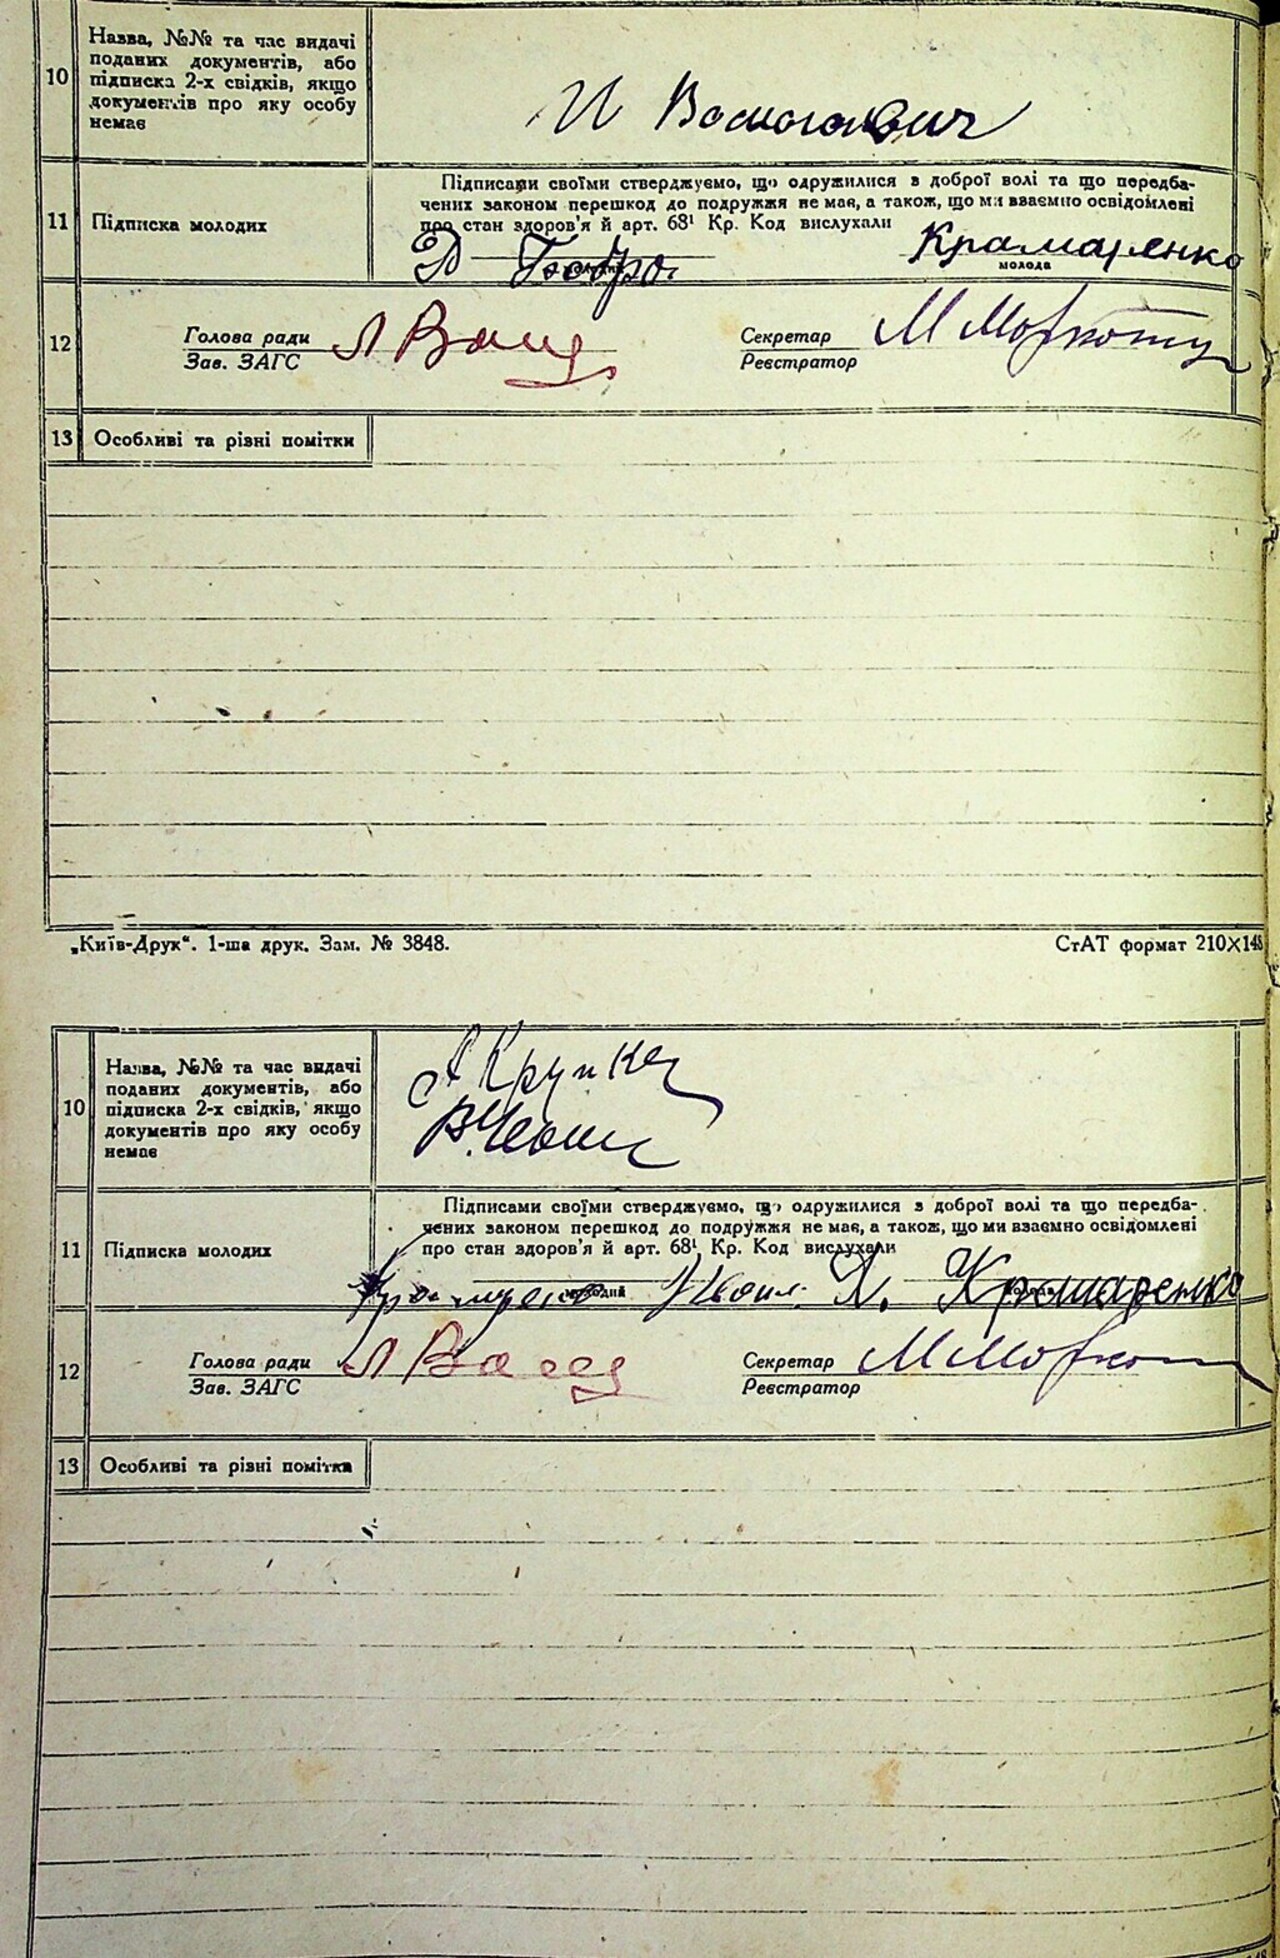 10
Назва, №№ та час видачі
поданих документів, або
підписка 2-х свідків, якщо
документів про яку особу
немає
И
11
Підписка молодих
Підписами своїми стверджуємо, що одружилися з доброї волі та що передба-
чених законом перешкод до подружжя не має, а також, що ми взаємно освідомлені
про стан здоров'я й арт. 68¹ Кр. Код вислухали
Крамаренко
молода
12
Голова ради
Зав. ЗАГС
Секретар
Реєстратор
13
Особливі та різні помітки
„Київ-Друк“. 1-ша друк. Зам. № 3848.
СтАТ формат 210×148
10
Назва, №№ та час видачі
поданих документів, або
підписка 2-х свідків, якщо
документів про яку особу
немає
11
Підписка молодих
Підписами своїми стверджуємо, що одружилися з доброї волі та що передба-
чених законом перешкод до подружжя не має, а також, що ми взаємно освідомлені
про стан здоров'я й арт. 68¹ Кр. Код вислухали
Крамаренко
12
Голова ради
Зав. ЗАГС
Секретар
Реєстратор
13
Особливі та різні помітки